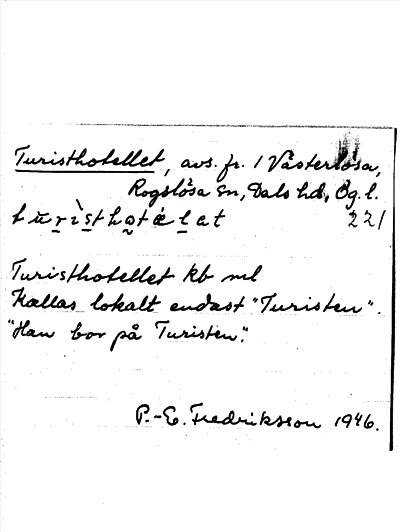 Turisthotellet, avs. fr. 1 Västerlösa,
Rogslösa sn, Dals hd, Ög. l.
turìsthotǽlat 221
Turisthotellet kb ml
Kallas lokalt endast "Turisten".
"Han bor på Turisten".
P.-E. Fredriksson 1946.